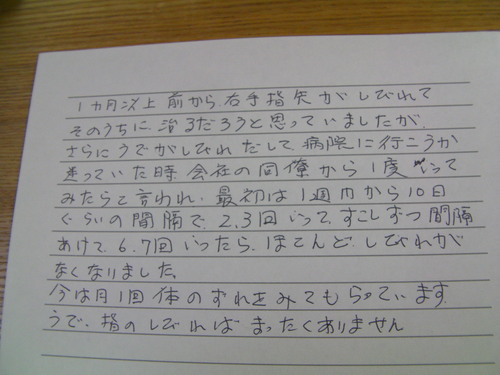 1カ月以上前から、右手指先がしびれて
そのうちに、治るだろうと思っていましたが、
さらにうでがしびれだして病院に行こうか
迷っていた時 会社の同僚から1度いって
みたらと言われ、最初は1週間から10日
ぐらいの間隔で、2,3回いって、すこしずつ間隔
あけて、6,7回いったら、ほとんど、しびれが
なくなりました。
今は月1回体のずれをみてもらっています。
うで、指のしびれは まったくありません